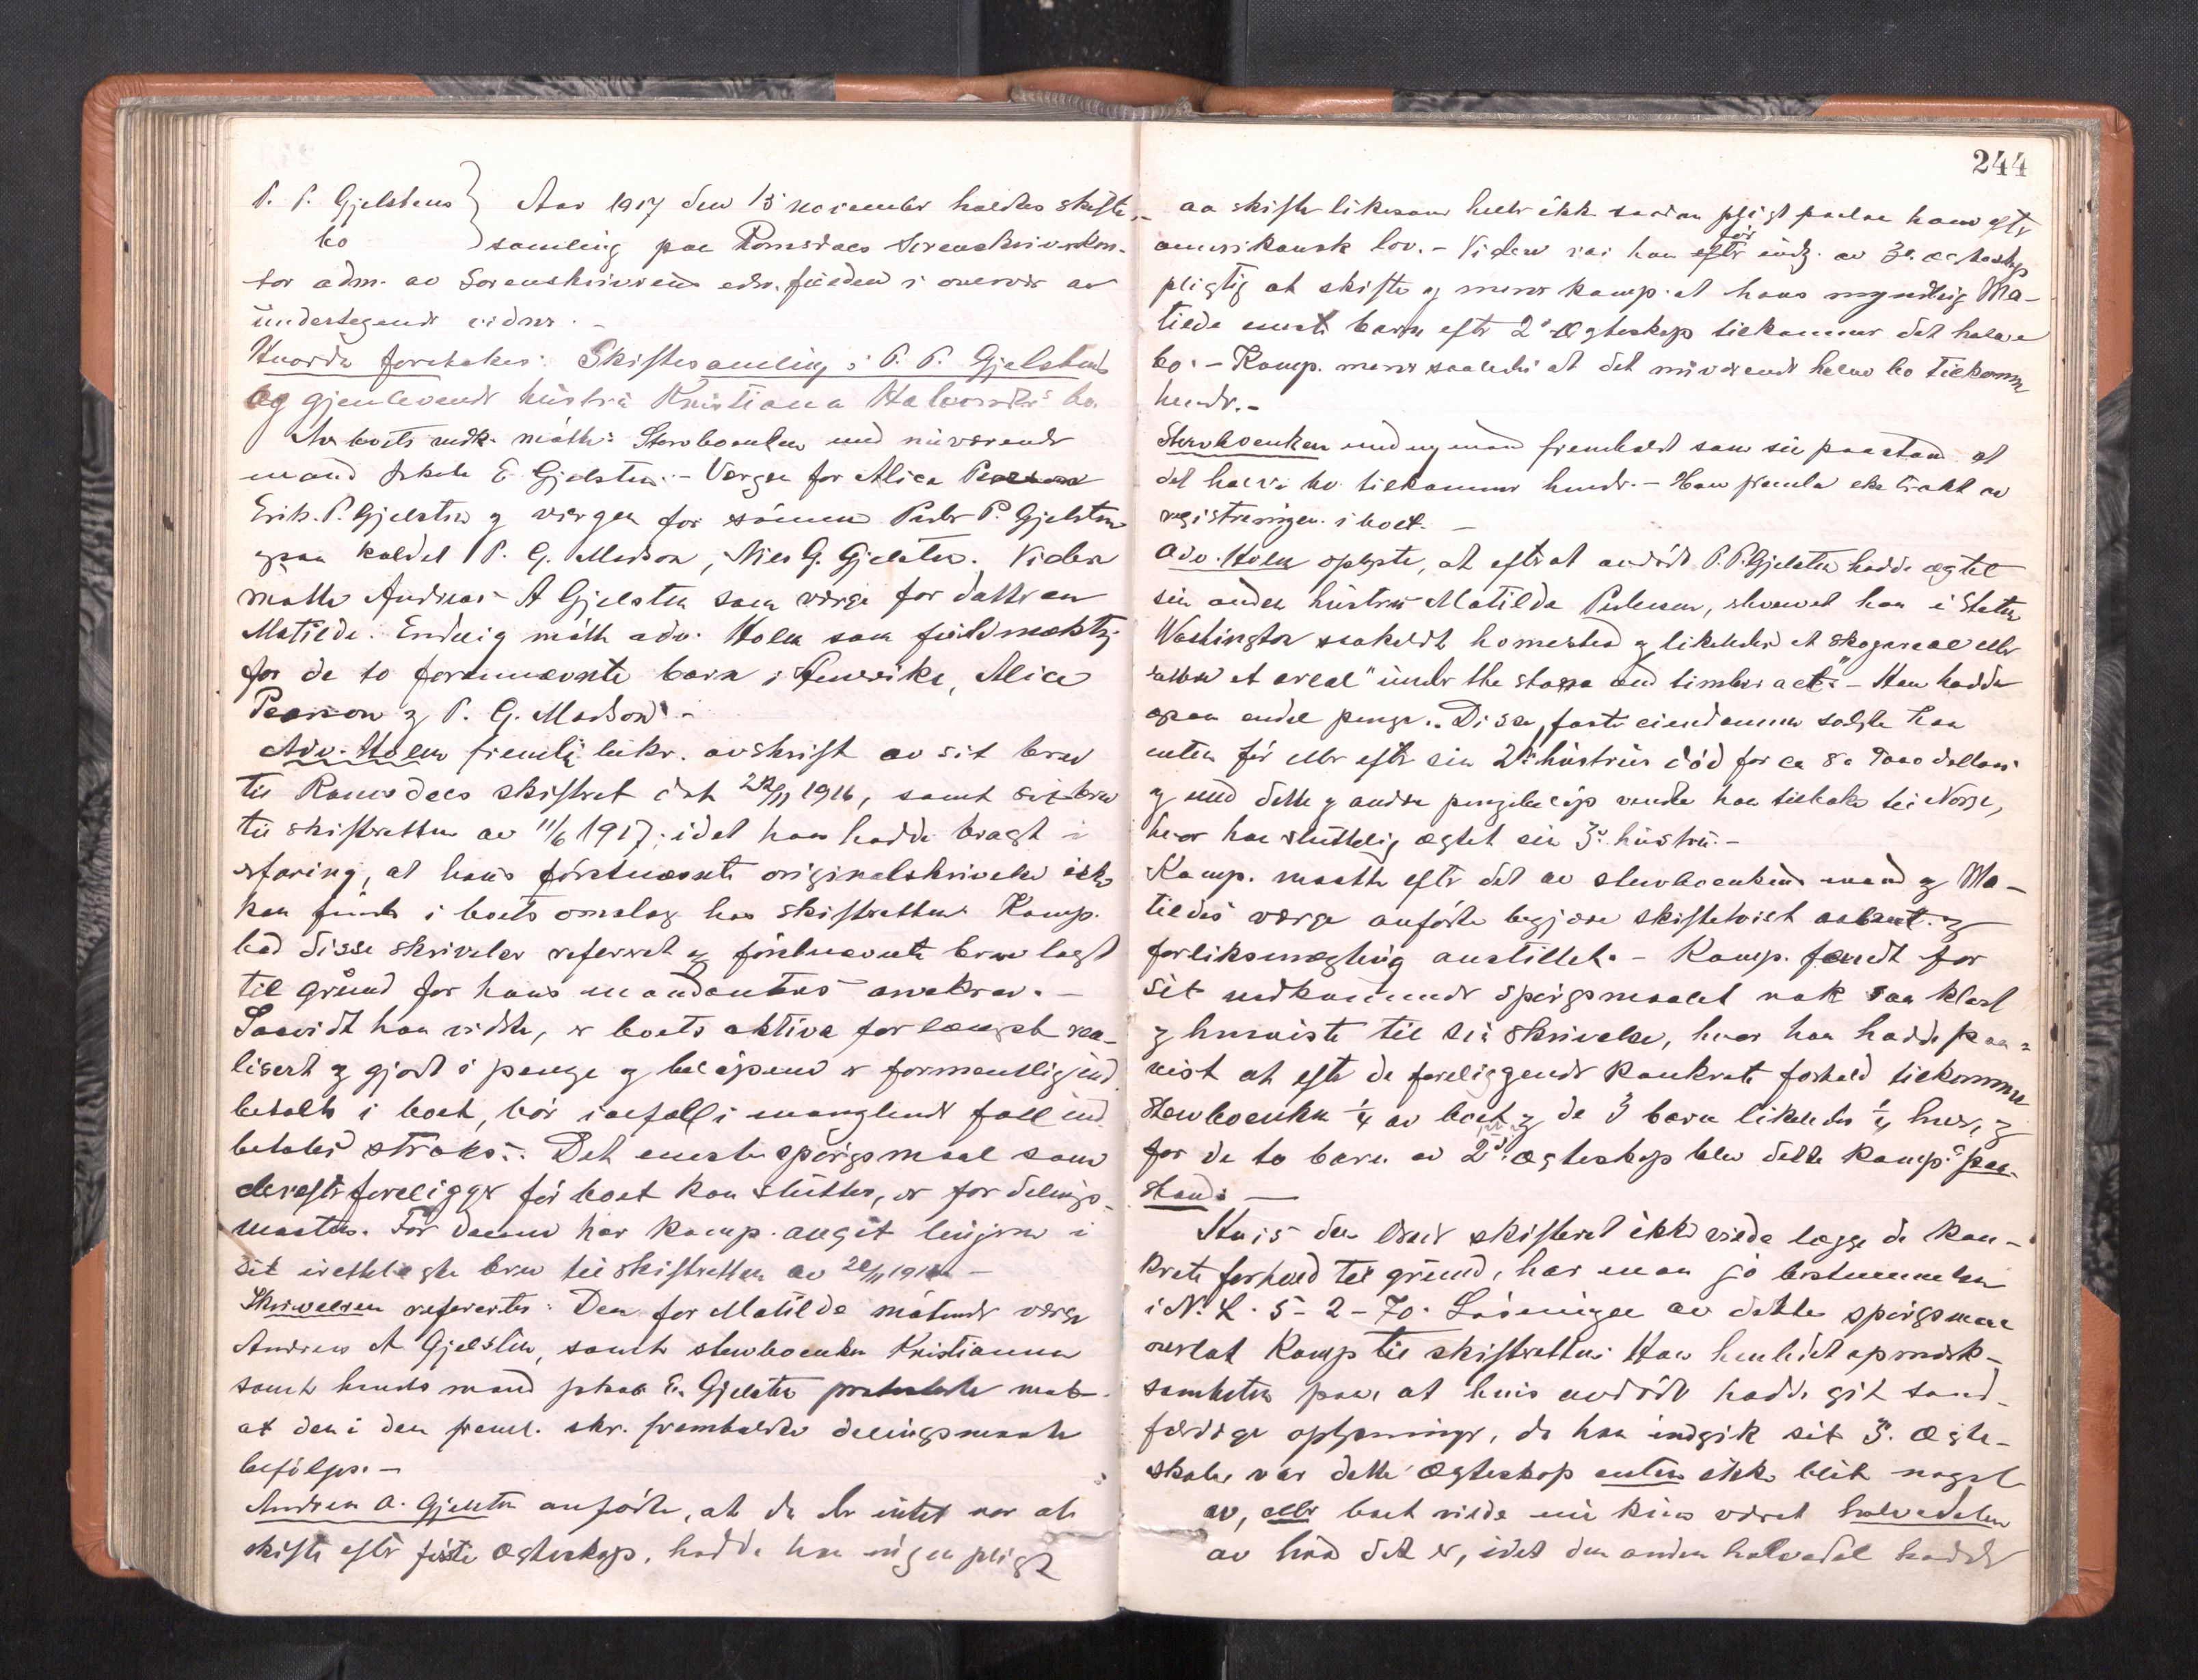 P. P. Gjelstens
bo
Aar 1917 den 13 november holdtes skifte-
samling paa Romsdals sorenskriverkon-
tor adm. av sorenskriveren edsv. fuldm. i overvær av
undertegnede vidner. -
Hvorda foretokes: Skiftesamling i P. P. Gjelstens
og gjenlevende hustru Kristiana Halvorsdtrs bo.
Av boets vedk. møtte: Sterboenken med nuværende
mand E. Gjelsten. - Vergen for Alice Pearson
Erik P. Gjelsten og vergen for sønnen Peder P. Gjelsten
ogsaa kaldet P. G. Madson, Nils G. Gjelsten. Viden
møtte Andreas A Gjelsten som verge for datteren
Matilde. Endelig møtte adv. Holm som fuldmægtig
for de to forannævnte barn i Amerika, Alice
Pearson og P. G. Madson. -
Adv. Holm freml. bekr. avskrift av sit brev
til Romsdals skifteret dat 22/11 1916, samt sit brev
til skifteretten av 11/6 1917, idet han hadde bragt i
erfaring, at hans førstnævnte originalskrivelse ikke
kan findes i boets omslag hos skifteretten. Komp.
bad disse skrivelser referert og førstnævnte brev lagt
til grund for hans mandanters arvekrav. -
Saavidt han vidste, er boets aktiva forlængst rea-
lisert og gjort i penge og beløpene er formentlig ind
betalt i boet, bør i alfall i manglende fall ind
betales straks. Det eneste spørgsmaal som
derefter foreligger før boet kan sluttes, er for delings-
maaten. For denne har komp. angit linjerne i
sit irettelagte brev til skifteretten av 22/11 1916 -
Skrivelsen refereertes: Den for Matilde møtende verge
Andreas A Gjelsten, samt sterboenken Kristianna
samt hendes mand E. Gjelsten protesterte mot
at den i den freml. skr. fremholdte delingsmaate
befølges. -
Andreas A. Gjelsten anførte, at da der intet var at
skifte efter første ægteskap, hadde han ingen pligt
244
aa skifte likesom heller ikke saadan pligt paalaa ham efter
amerikansk lov. - Viden var han før indg. av 3die ægteskap
pligtig at skifte og mener komp. at hans myndling Ma-
tilde eneste barn efter 2det Ægteskap tilkommer det halve
bo. - Komp. mener saaledes at det nuværende halve bo tilkommer
hende. -
Sterboenken med ny mand fremholdt som sin paastand at
det halve bo tilkommer hende. - Han fremla ekstrakt av
registreringen i boet. -
Adv. Holm oplyste, at efterat avdøde P. P. Gjelsten hadde ægtet
sin anden hustru Matilda Pedersen, erhvervet han i Staten
Washington saakaldt homestead og likeledes et skogareal eller
rettere et areal "under the stone and timber act". - Han hadde
ogsaa endel penge. Disse faste eiendomme solgte han
enten før eller efter sin 2den hustrus død for ca 8 a 9000 dollars
og med dette og andre pengebeløp vendte han tilbake til Norge,
hvor han sluttelig ægtet sin 3die hustru. -
Komp. maatte efter det av sterboenkens mand og Ma-
tildes verge anførte begjære skiftetvist aabnet og
forliksmægling anstillet. - Komp. fandt for
sit vedkommende spørgsmaalet nok saa klart
og henviste til sin skrivelse, hvor han hadde paa-
vist at efter de foreliggende konkrete forhold tilkommer
sterboenken 1/4 av boet og de 3 barn likeledes 1/4 hver, og
for de to barn av 2det Ægteskap blev dette komp.s paa-
stand: -
Hvis den ærede skifteret ikke vilde lægge de kon-
krete forhold til grund, har man jo bestemmelsen
i N. L. 5-2-70. Løsningen av dette spørgsmaal
overlot Komp til skifteretten. Han henledet opmerk-
somheten paa, at hvis avdøde hadde git sand-
færdige oplysninger, da han indgik sit 3. ægte-
skab, var dette Ægteskap enten ikke blit noget
av, eller boet vilde nu kun været halvedelen
av hvad det er, idet den anden halvedel hadde